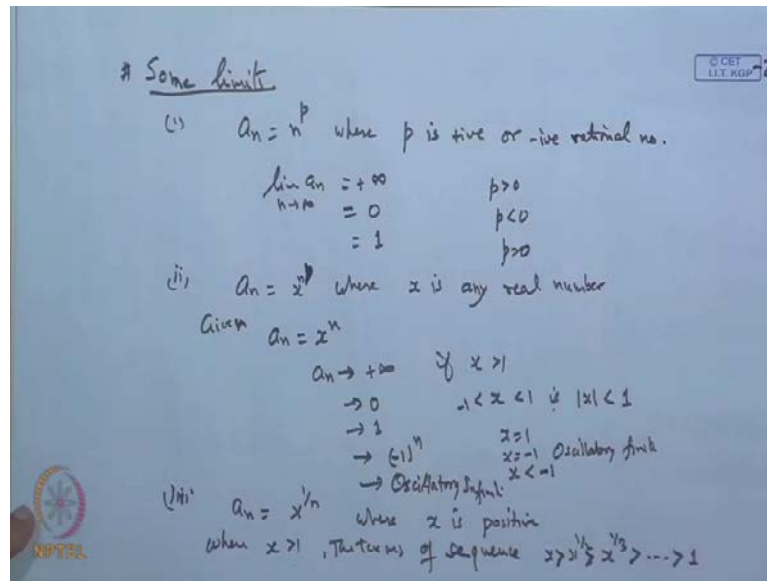 # Some limits
© CET
I.I.T. KGP
(i) an = n^p where p is +ive or -ive rational no.
lim an = +∞ p>0
n→∞
= 0 p<0
= 1 p=0
(ii) an = x^n where x is any real number
Given an = x^n
an → +∞ if x>1
→ 0 -1<x<1 ie |x|<1
→ 1 x=1
→ (-1)^n x=-1 Oscillatory finite
→ Oscillatory Infinite x<-1
(iii) an = x^1/n where x is positive
when x>1, The terms of sequence x>x^1/2> x^1/3>---->1
NPTEL